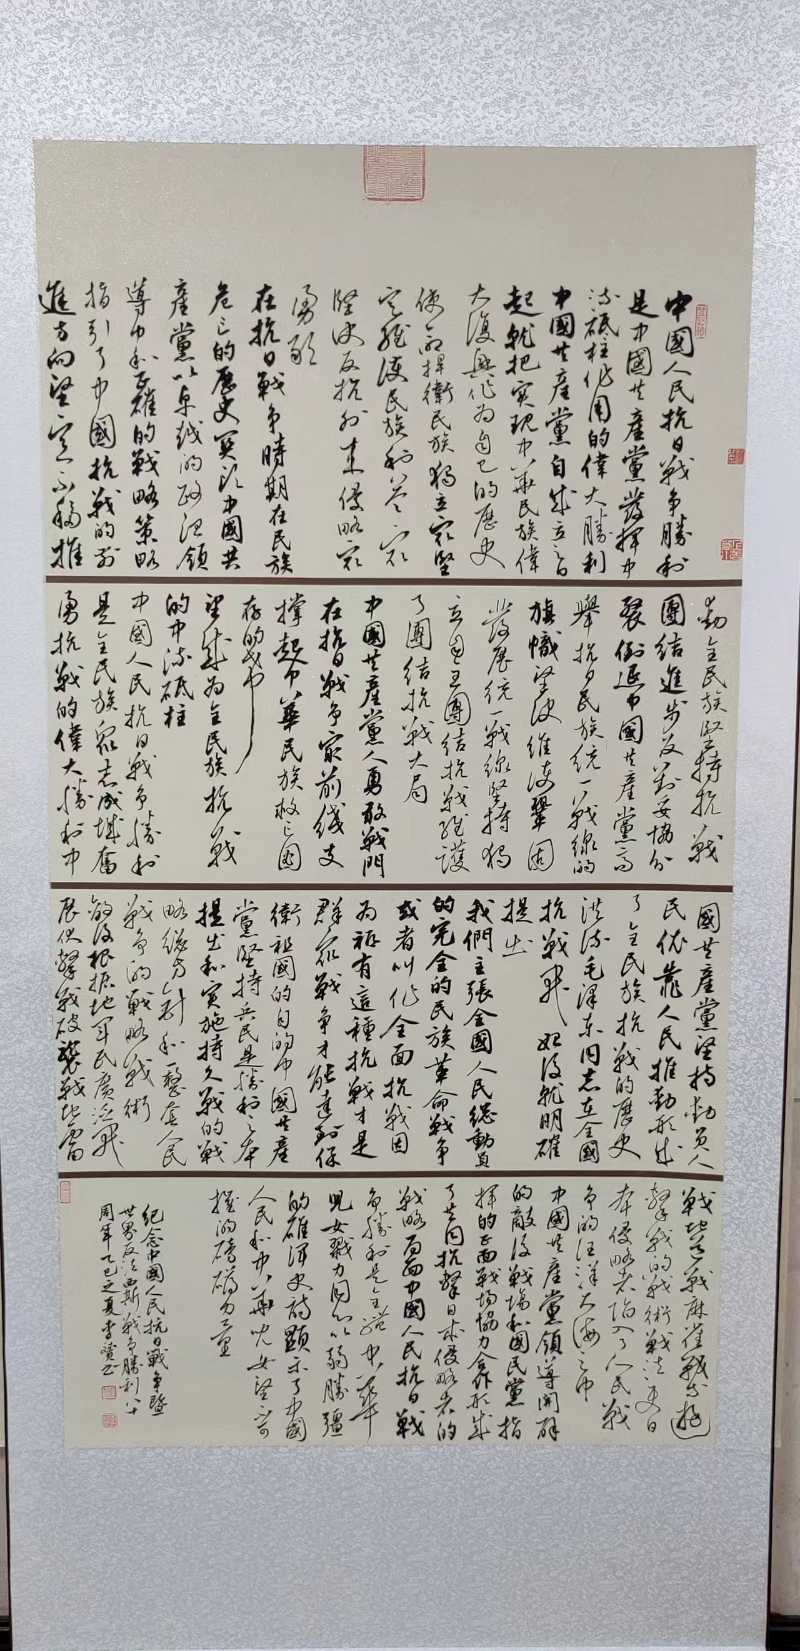 中國人民抗日戰争勝利
是中國共産黨發揮中
流砥柱作用的偉大勝利
中國共産黨自成立之日
起就把实現中華民族偉
大復興作为自己的歷史
使命捍衛民族獨立最堅
定維護民族利益最
堅决反抗外来侵略最
勇敢
在抗日戰争時期在民族
危亡的歷史関头中國共
産黨以卓越的政治領
導力和正確的戰略策略
指引了中國抗戰的前
進方向堅定不移推
動全民族堅持抗戰
團結進步反對妥協分
裂倒退中國共産黨高
舉抗日民族統一戰線的
旗幟堅决維護鞏固
發展統一戰線堅持獨
立自主團結抗戰維護
了團結抗戰大局
中國共産黨人勇敢戰鬥
在抗日戰争最前綫支
撑起中華民族救亡圖
存的希望
成为全民族抗戰
的中流砥柱
中國人民抗日戰争勝利
是全民族衆志成城奮
勇抗戰的偉大勝利中
國共産黨堅持動員人
民依靠人民推動形成
了全民族抗戰的歷史
洪流毛澤东同志在全國
抗戰爆發後就明確
提出
我們主張全國人民總動員
的完全的民族革命戰争
或者叫作全面抗戰因
为祇有這種抗戰才是
群衆戰争才能達到保
衛祖國的目的中國共産
黨堅持兵民是勝利之本
提出和实施持久戰的戰
略總方針和一整套人民
戰争的戰略戰術
敵後根據地軍民廣泛開
展伏擊戰破襲戰地雷
戰地道戰麻雀戰等游
擊戰的戰術戰法使日
本侵略者陷入了人民戰
争的汪洋大海之中
中國共産黨領導開辟
的敵後戰場和國民黨指
揮的正面戰場協力合作形成
了共同抗擊日本侵略者的
戰略局面中國人民抗日戰
争勝利是全體中華
兒女戮力同心以弱勝彊
的雄渾史詩顯示了中國
人民和中華兒女堅不可
摧的磅礴力量
紀念中國人民抗日戰争暨
世界反法西斯戰争勝利八十
周年乙巳之夏李